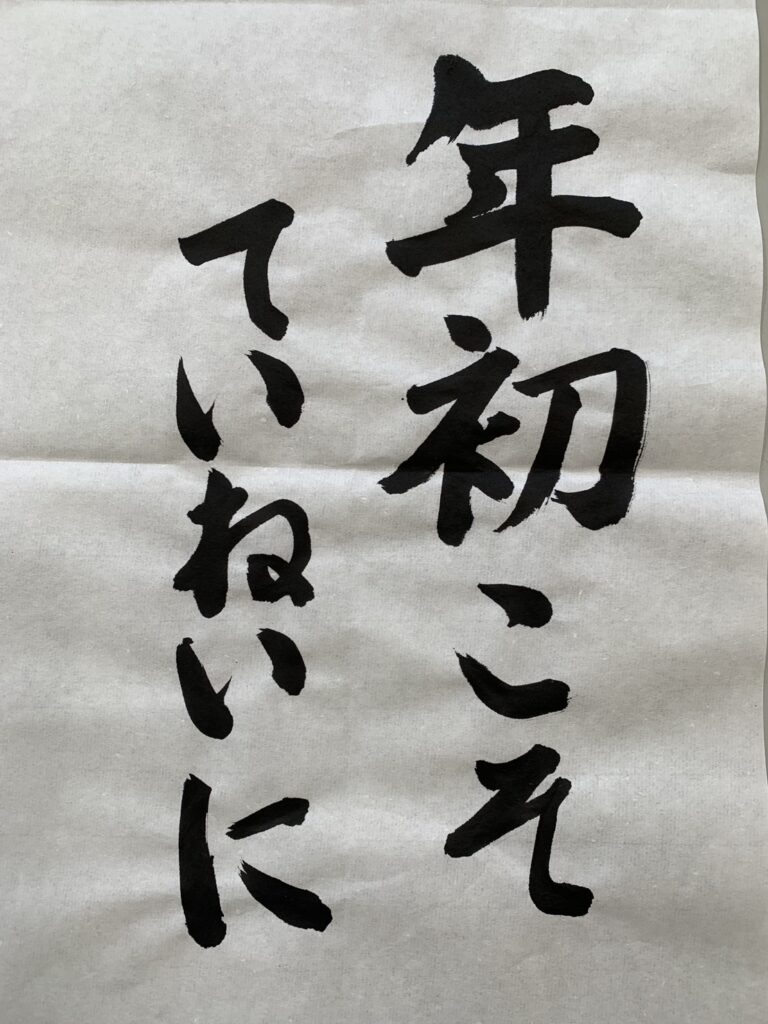 年初こそ
ていねいに